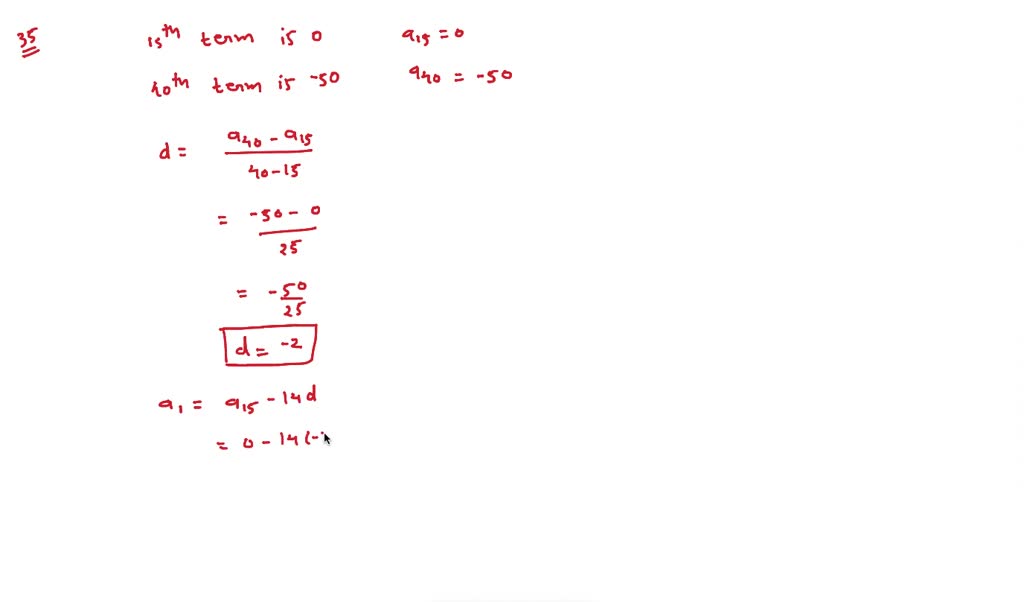 35
15th term is 0 a15 = 0
40th term is -50 a40 = -50
d = a40 - a15
40-15
= -50 - 0
25
= -50
25
d = -2
a1 = a15 - 14d
= 0 - 14(-